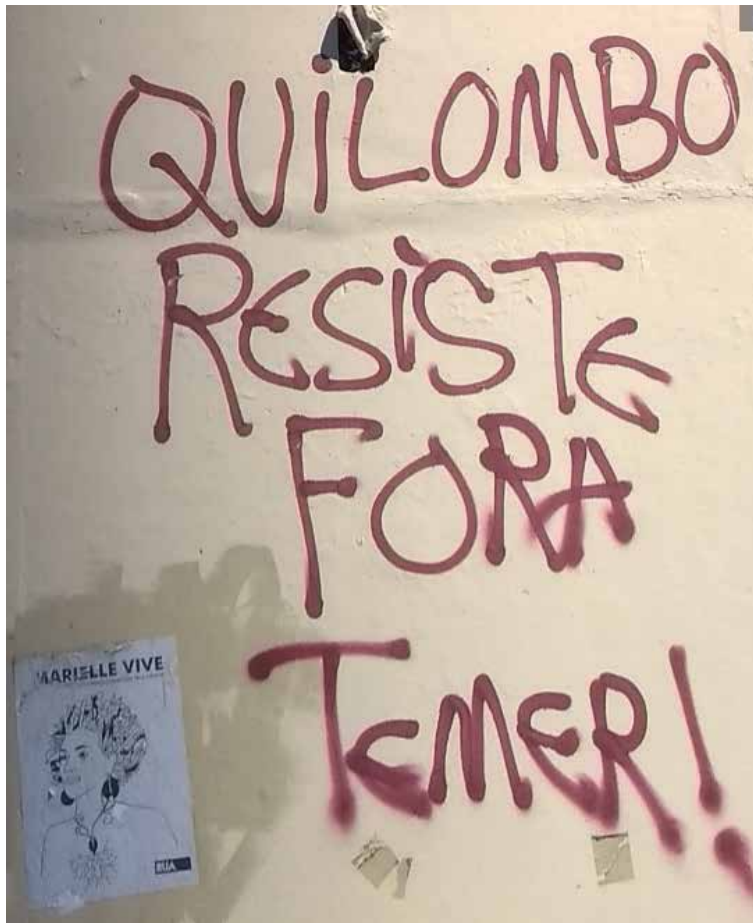 QUILOMBO
RESISTE
FORA
TEMER!
MARIELLE VIVE
RUA